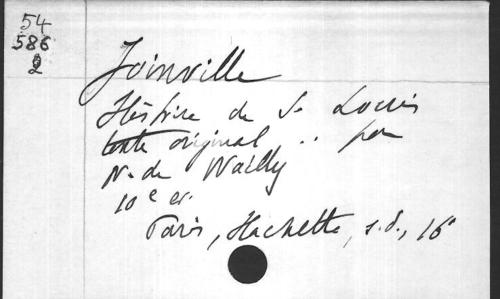 54
586
2
Joinville
Histoire de St Louis
texte original .. par
N. de Wailly
10e éd.
Paris, Hachette, s.d., 16°